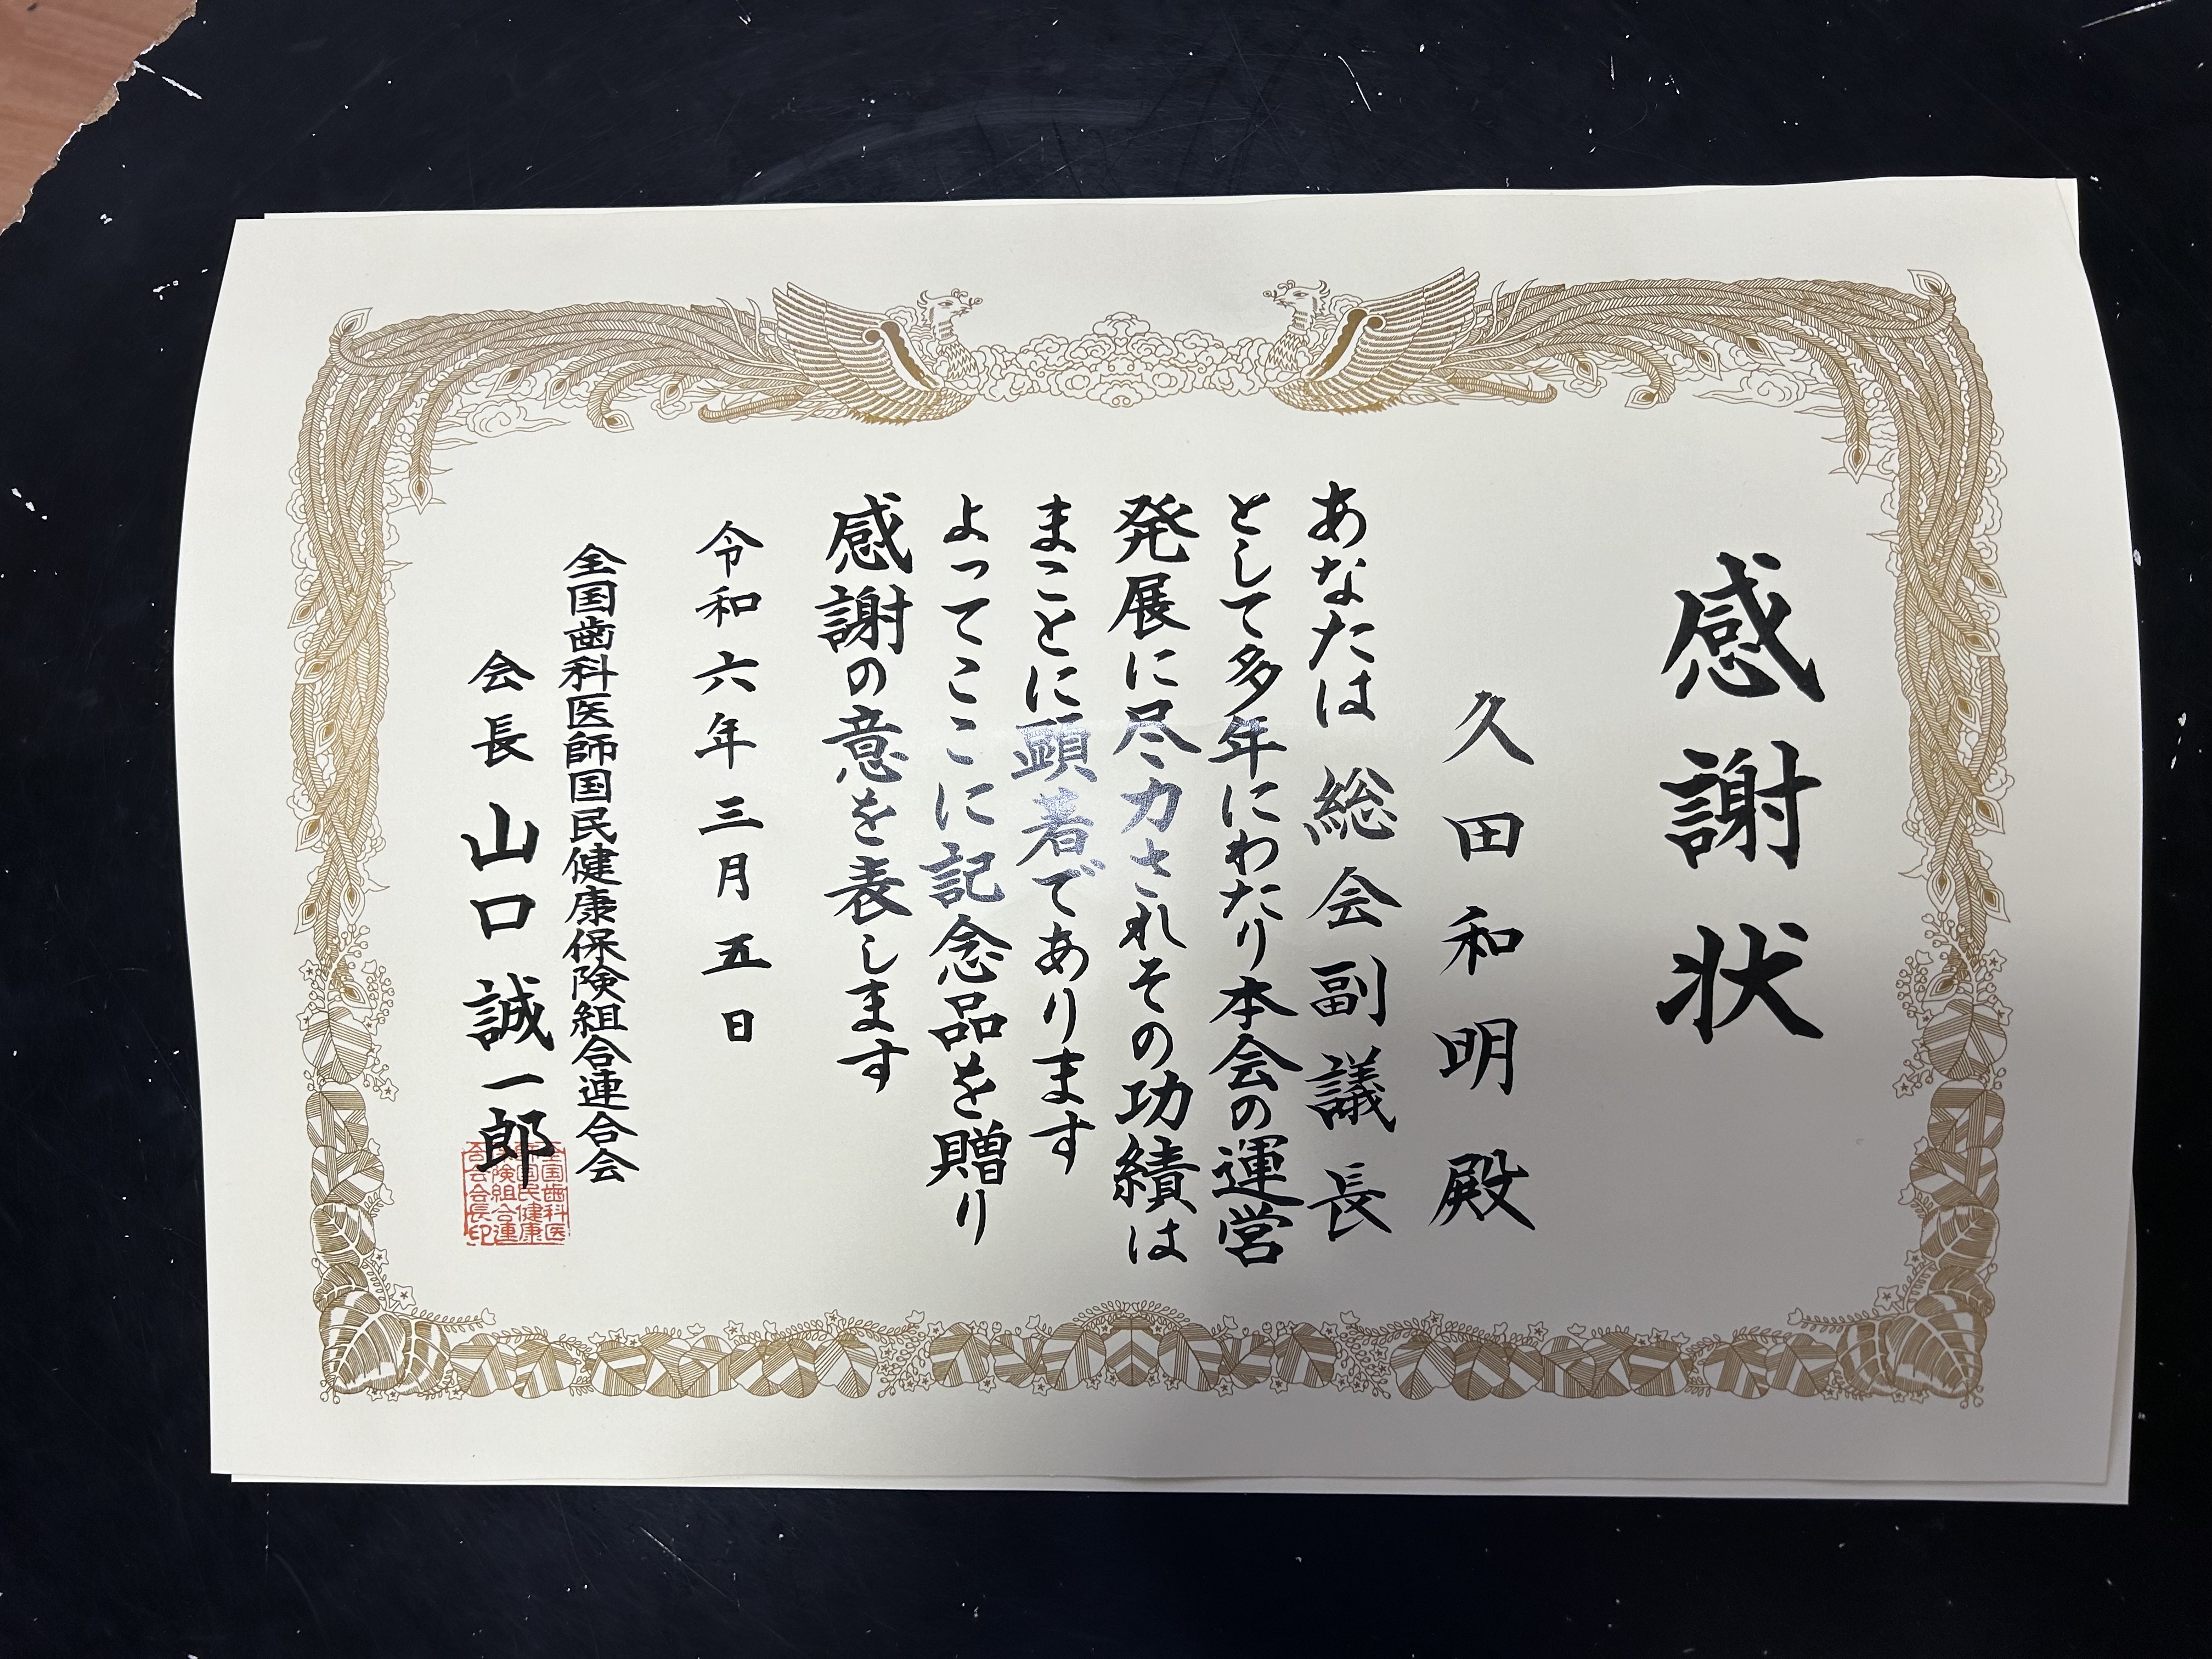 感謝状
久田和明殿
あなたは総会副議長
として多年にわたり本会の運営
発展に尽力されその功績は
まことに顕著であります
よってここに記念品を贈り
感謝の意を表します
令和六年三月五日
全国歯科医師国民健康保険組合連合会
会長 山口誠一郎
全国歯科医
師国民健康
保険組合連
合会会長印